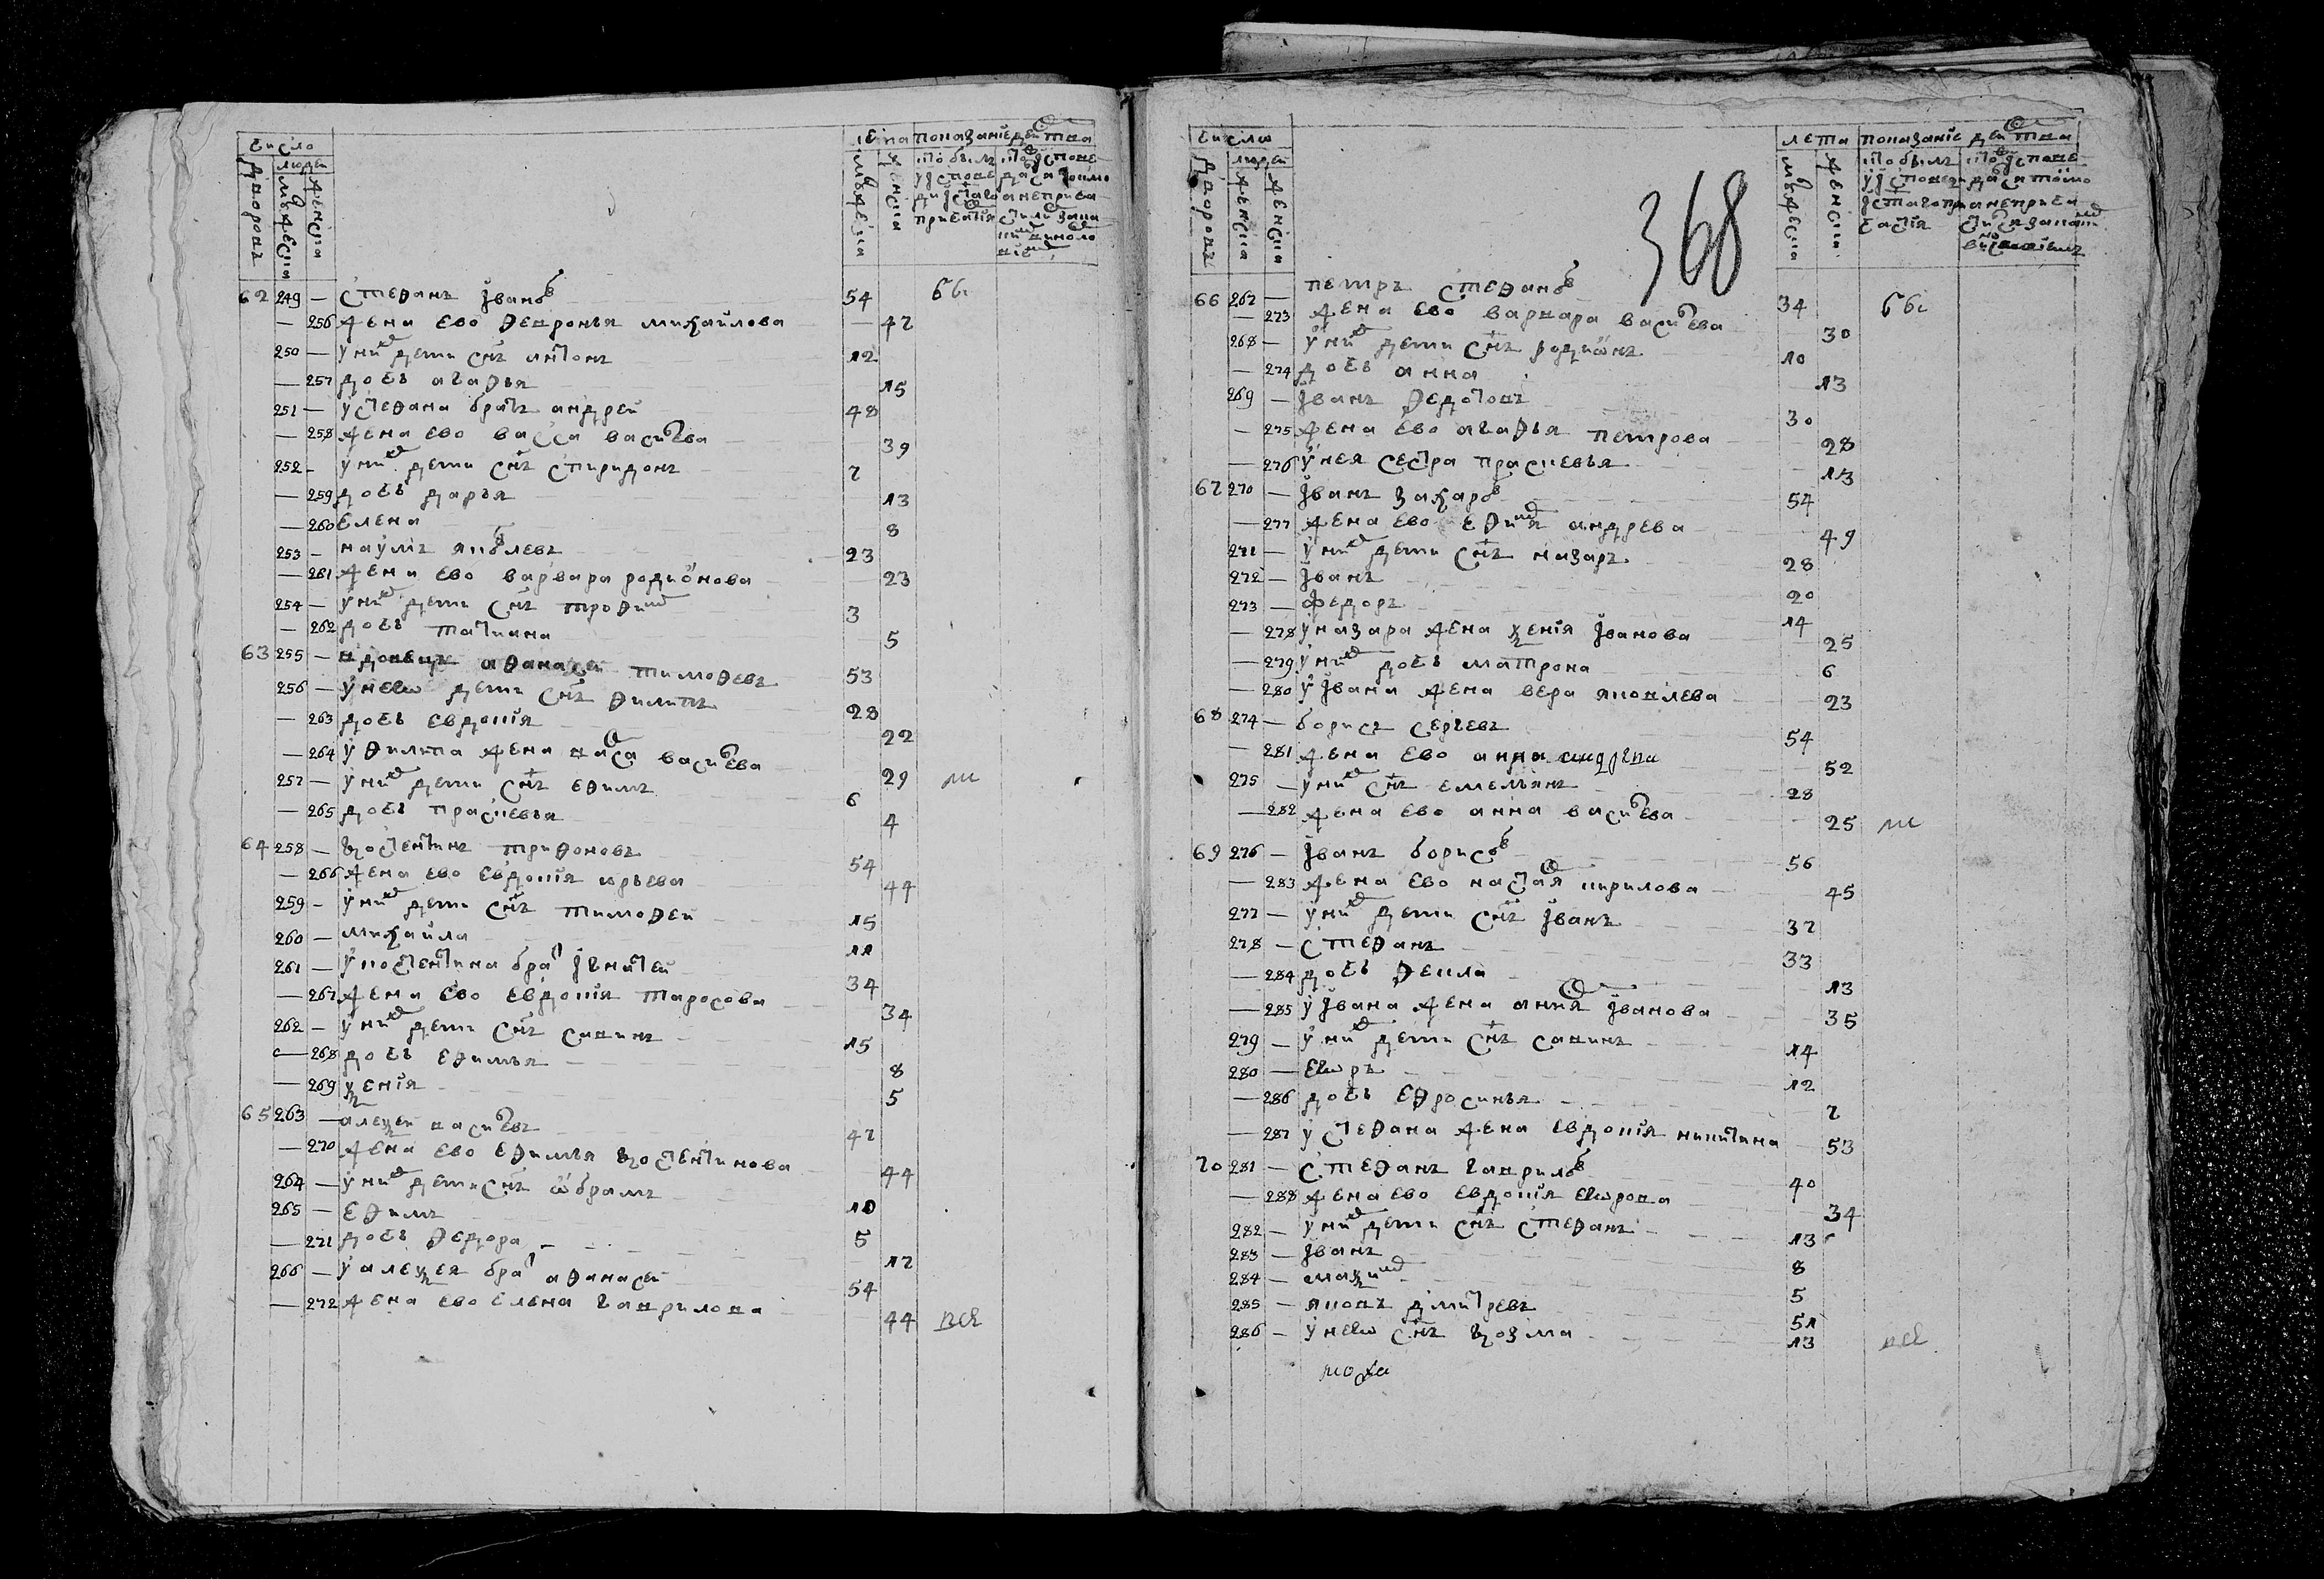 число
дворовъ
людей
мужеска
женска
лета
мужеска
женска
показанїе действа
62 249 — Степанъ Івановъ 54 бы
— 256 жена ево Февронья михаилова — 47
250 — у них дети снъ антонъ 12
— 257 дочь агафья 15
251 — у степана братъ андрей 48
— 258 жена ево васса василева 39
252 — у них дети снъ спиридонъ 7
— 259 дочь дарья 13
— 260 елена 8
253 — наумъ яковлевъ 23
— 261 жена ево варвара родионова 23
254 — у них дети снъ трофим 3
— 262 дочь татиана 5
63 255 — вдовецъ афанасей тимофевъ 53
256 — у него дети снъ филипъ 28
— 263 дочь евдокїя 22
— 264 у филипа жена васса василева 29
257 — у них дети снъ ефимъ 6
— 265 дочь прасковья 4
64 258 — костентинъ трифоновъ 54
— 266 жена ево евдокїя юрьева 44
259 — у них дети снъ тимофей 15
260 — михаила 11
261 — у костентина брат Ігнатей 34
— 267 жена ево евдокїя тарасова 34
262 — у них дети снъ савинъ 15
— 268 дочь ефимья 8
— 269 ксенїя 5
65 263 — алексей василевъ 47
— 270 жена ево ефимья костентинова 44
264 — у них дети снъ абрамъ 10
265 — ефимъ 5
— 271 дочь федора 17
266 — у алексея брат афанасей 54
— 272 жена ево елена гаврилова 44 все
368
число
дворовъ
людей
женска
женска
лета
мужеска
женска
показанїе действа
66 267 — петръ степановъ 34 бы
— 273 жена ево варвара василева 30
268 — у них дети снъ родионъ 10
— 274 дочь анна 13
269 — Іванъ федотовъ 30
— 275 жена ево агафья петрова 28
— 276 у нея сестра прасковья 13
67 270 — Іванъ захаровъ 54
— 277 жена ево ефимия андрева 49
271 — у них дети снъ назаръ 28
272 — Іванъ 20
273 — федоръ 14
— 278 у назара жена ксенїя Іванова 25
— 279 у них дочь матрона 6
— 280 у Івана жена вера яковлева 23
68 274 — борисъ сергевъ 54
— 281 жена ево анна андрева 52
275 — у них снъ емельянъ 28
— 282 жена ево анна василева 25
69 276 — Іванъ борисовъ 56
— 283 жена ево настася кирилова 45
277 — у них дети снъ Іванъ 37
278 — степанъ 33
— 284 дочь фекла 13
— 285 у Івана жена анися Іванова 35
279 — у них дети снъ савинъ 14
280 — егоръ 12
— 286 дочь ефросинья 7
— 287 у степана жена евдокїя никитина 53
70 281 — степанъ гавриловъ 40
— 288 жена ево евдокїя егорова 34
282 — у них дети снъ степанъ 13
283 — Іванъ 8
284 — максим 5
285 — яковъ дмитревъ 51
286 — у него снъ козма 13 все